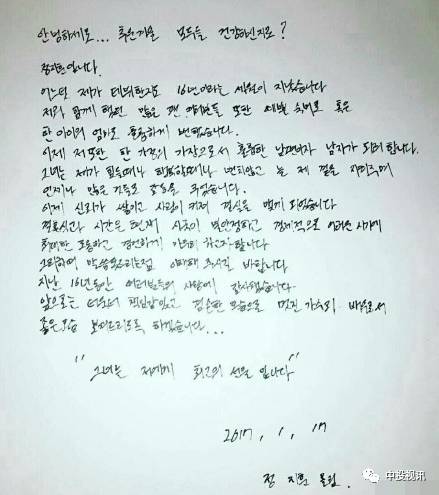 안녕하세요... 추운겨울 모두들 건강하신지요?
정지훈입니다.
어느덧 제가 데뷔한지도 16년이라는 세월이 지났습니다
저와 함께 했던 많은 팬 여러분들 또한 혹은
한 아이의 엄마로 훌륭하게 변했습니다.
이제 저 또한 한 가정의 가장으로서 훌륭한 남편이자 남자가 되려 합니다.
그녀는 제가 힘들때나 행복할때나 변치않고 늘 제 곁을 지켜주며
언제나 많은 것들로 감동을 주었습니다.
이제 신뢰가 쌓이고 사랑이 커져 결실을 맺게 되었습니다
결혼식과 시간은 현재 시국이 불안정하고 경제적으로 어려운 시기에
최대한 조용하고 경건하게 하고자 합니다
그리하여 말씀못드리는점 이해해 주시길 바랍니다
지난 16년동안 여러분들의 사랑에 감사했습니다
앞으로는 더욱더 책임감있고 겸손한 모습으로 멋진 가수와 배우로서
좋은모습 보여드리도록 하겠습니다...
"그녀는 저에게 최고의 선물 입니다"
2017. 1. 17
정 지훈 올림.
中投视讯